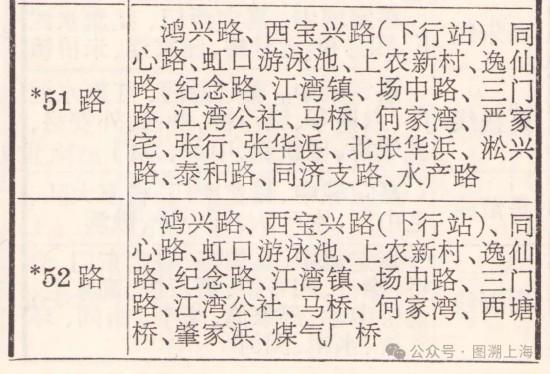 *51路
鸿兴路、西宝兴路(下行站)、同
心路、虹口游泳池、上农新村、逸仙
路、纪念路、江湾镇、场中路、三门
路、江湾公社、马桥、何家湾、严家
宅、张行、张华浜、北张华浜、淞兴
路、泰和路、同济支路、水产路
*52路
鸿兴路、西宝兴路(下行站)、同
心路、虹口游泳池、上农新村、逸仙
路、纪念路、江湾镇、场中路、三门
路、江湾公社、马桥、何家湾、西塘
桥、肇家浜、煤气厂桥
公众号·图溯上海